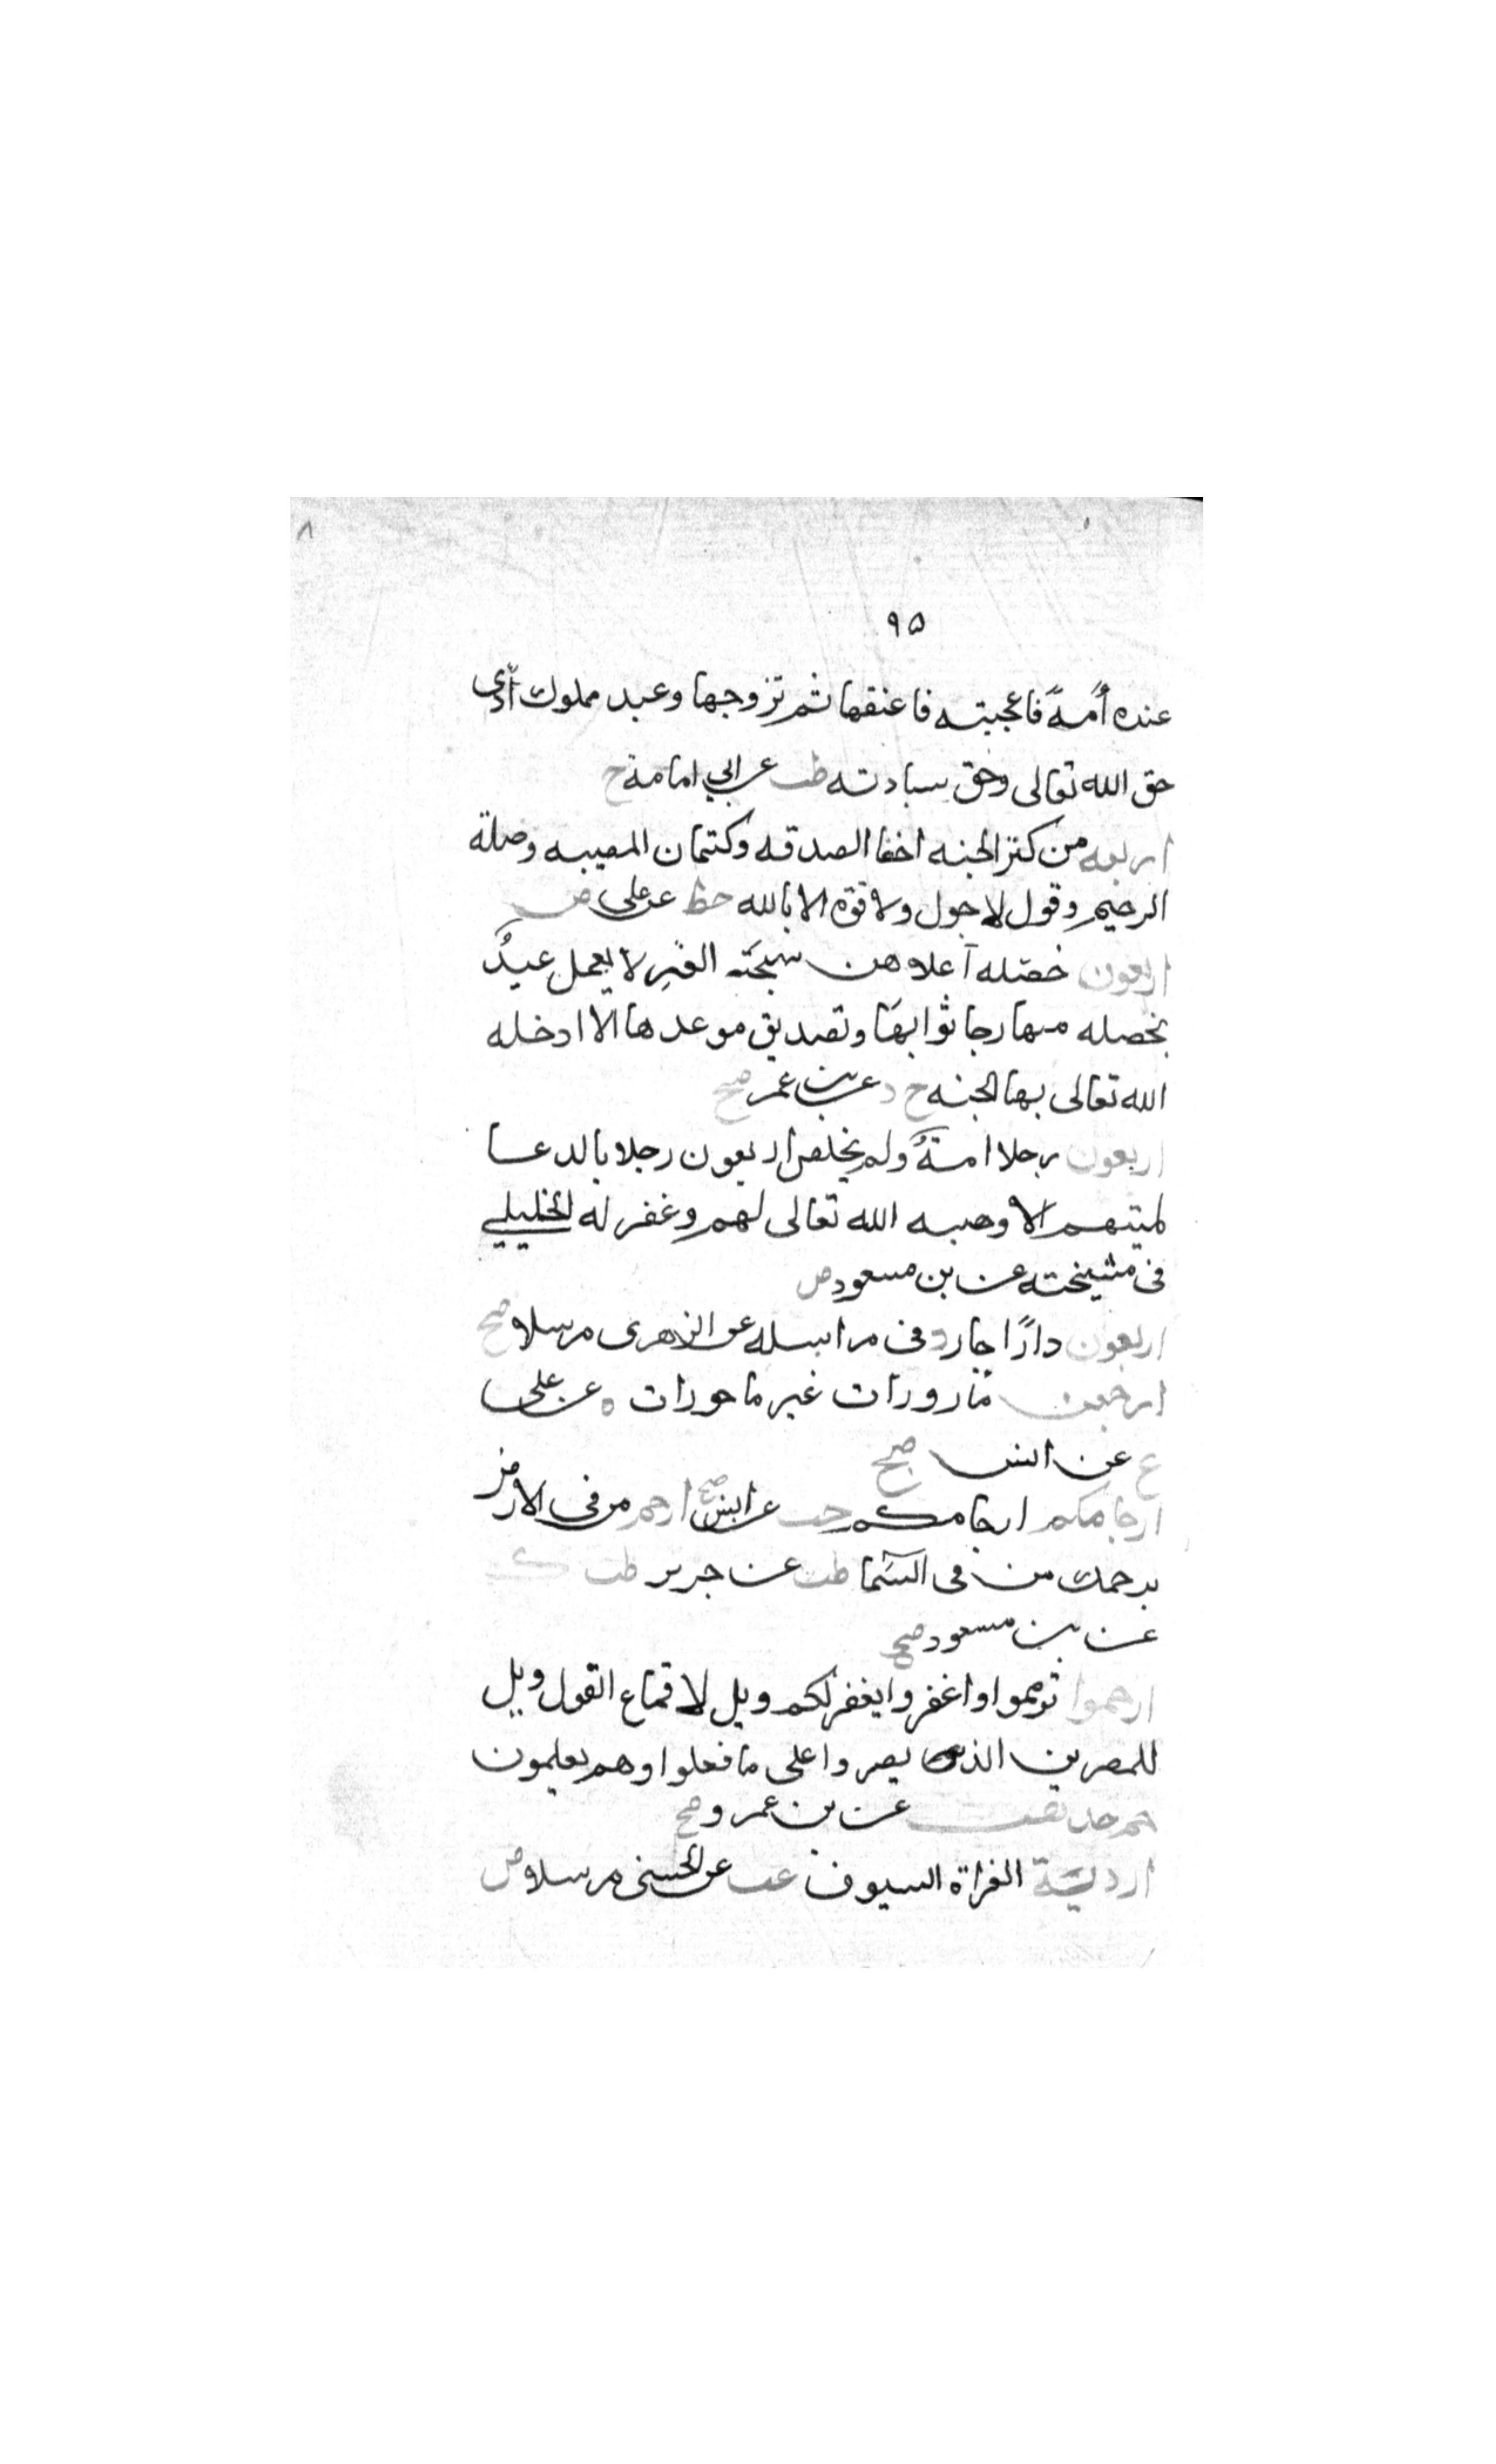 ٨
٩٥
عنده أمةً فاعجبته فاعتقها ثم تزوجها وعبد مملوك أدى
حق الله تعالى وحق سادته طب عن ابي امامة ح
اربعه من كنز الجنه اخفا الصدقه وكتمان المصيبه وصلة
الرحيم وقول لا حول ولا قوة الا بالله خط عن على ض
اربعون خصله أعلاهن منيحة العنز لا يعمل عبدٌ
بخصله منها رجا ثوابها وتصديق موعدها الا ادخله
الله تعالى بها الجنه خ د عن بن عمر صح
اربعون رجلا امةٌ ولم يخلص اربعون رجلا بالدعا
لميتهم الا وهبه الله تعالى لهم وغفر له الخليلي
فى مشيخته عن بن مسعود ض
اربعون دارًا جار د فى مراسله عن الزهرى مرسلا صح
ارجعن مازورات غير ماجورات ه عن على
ع عن انس صح
ارحامكم ارحامكم حب عن انس صح ارحم من فى الارض
يرحمك من فى السما طب عن جرير طب ك
عن بن مسعود صح
ارحموا ترحموا واغفروا يغفر لكم ويل لاقماع القول ويل
للمصرين الذى يصروا على ما فعلوا وهم يعلمون
حم خد عن بن عمرو صح
اردية الغزاة السيوف عب عن الحسن مرسلا ض